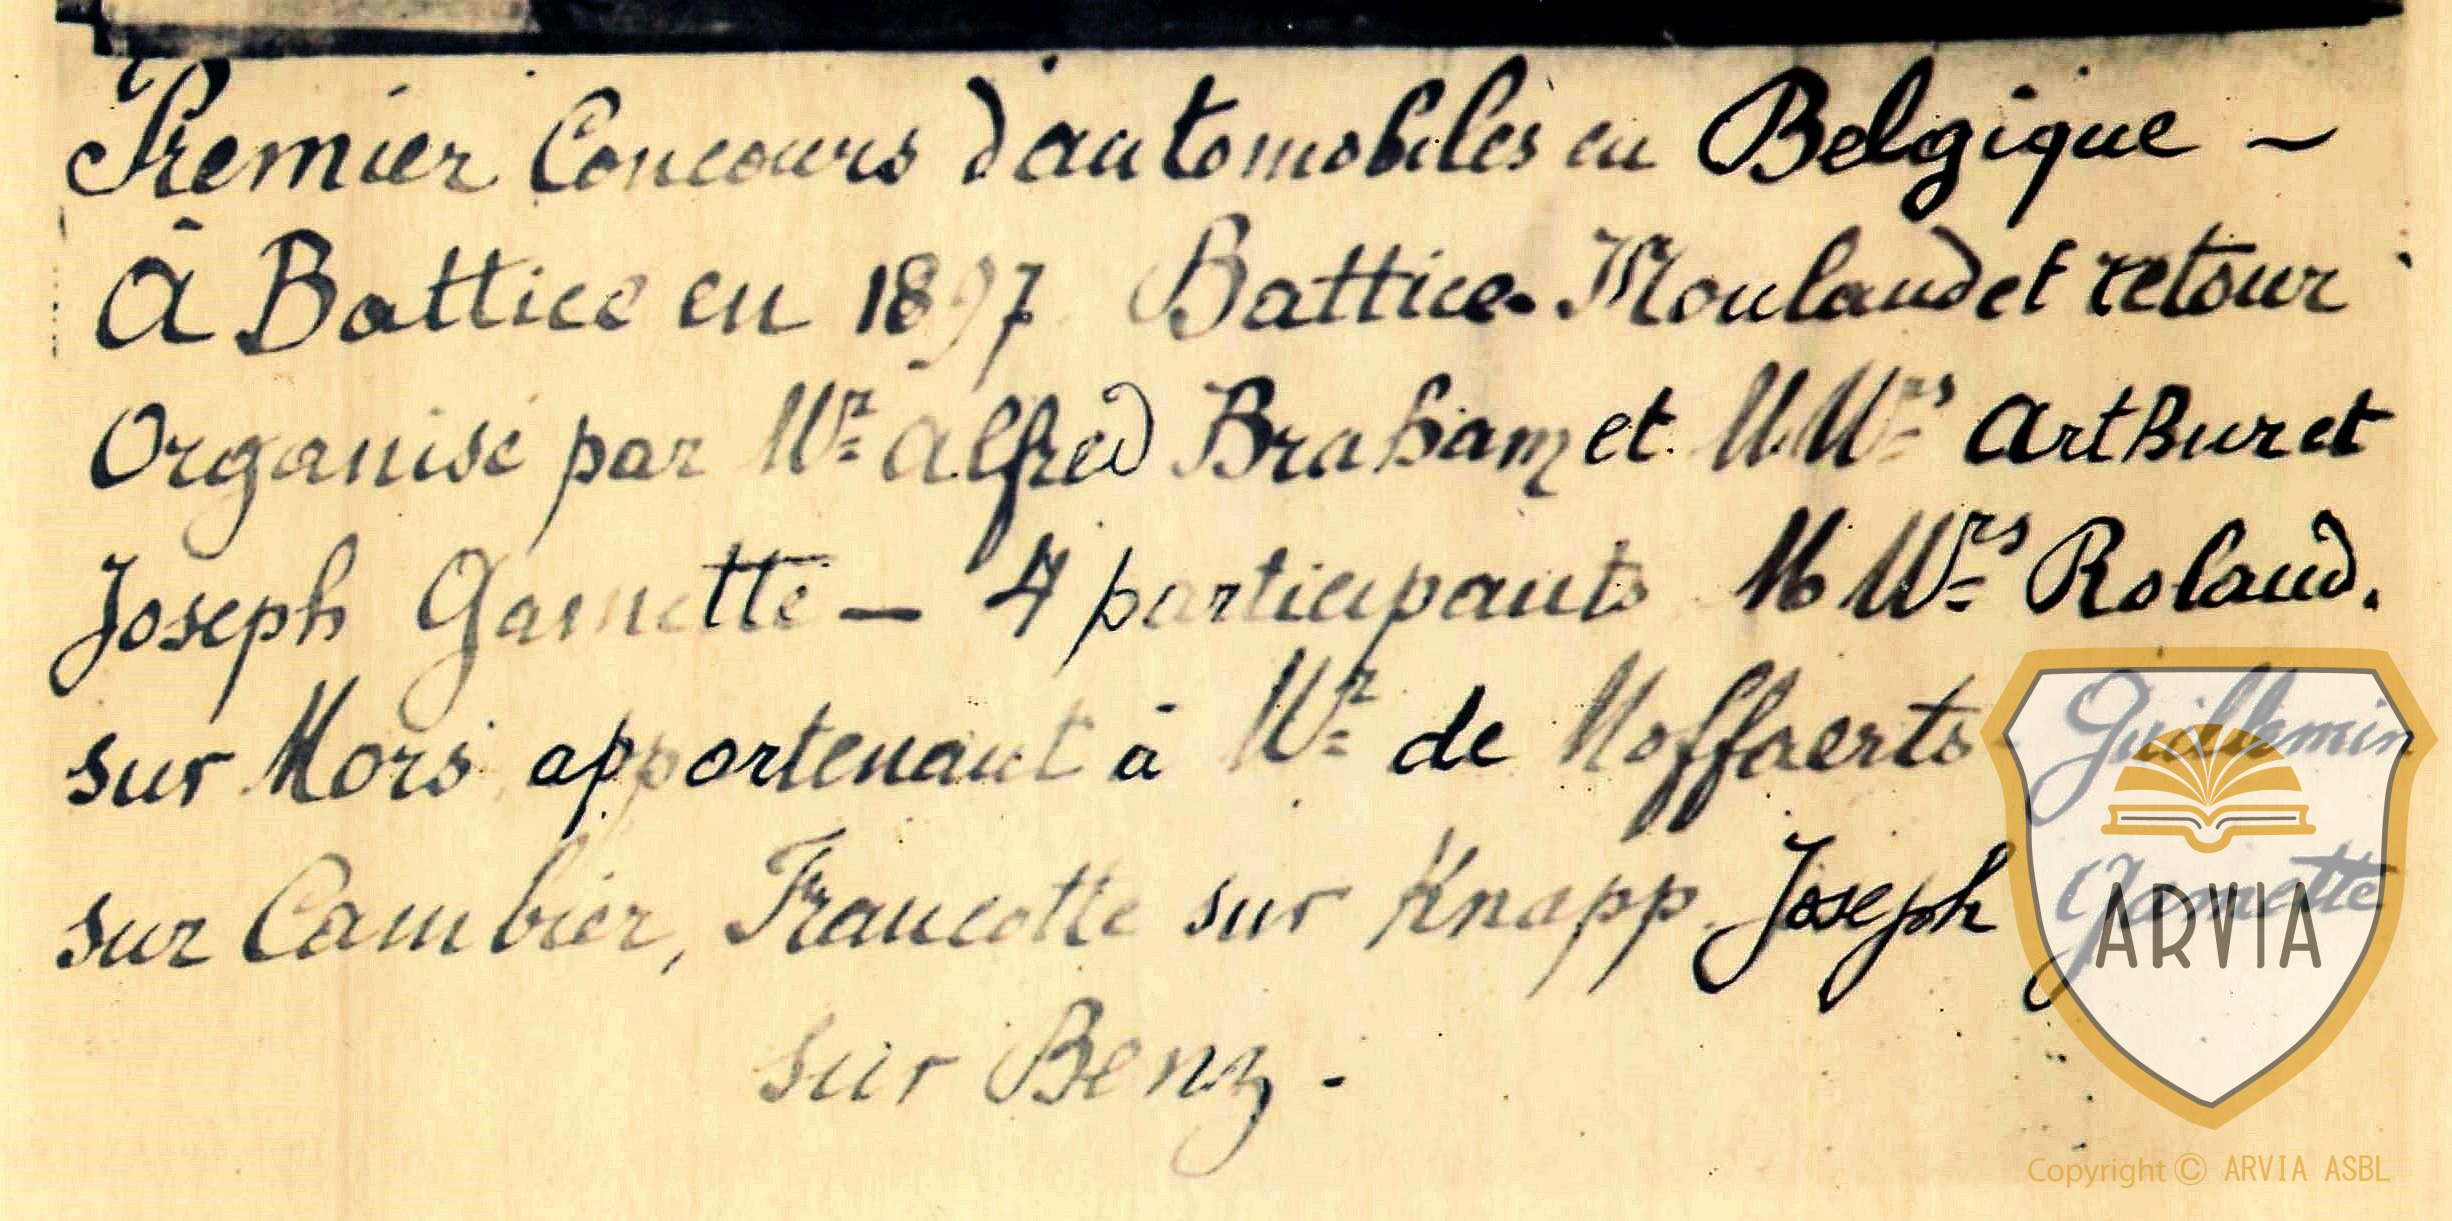 Premier Concours d'automobiles en Belgique -
À Battice en 1897 Battice-Mouland et retour
Organisé par Mr Alfred Braham et M.Mrs Arthur et
Joseph Garnette - 4 participants M Mrs Roland.
sur Mors appartenant à Mr de Moffaerts - Guillemin
sur Cambier, Francotte sur Knapp. Joseph Garnette
sur Benz -
ARVIA
Copyright © ARVIA ASBL